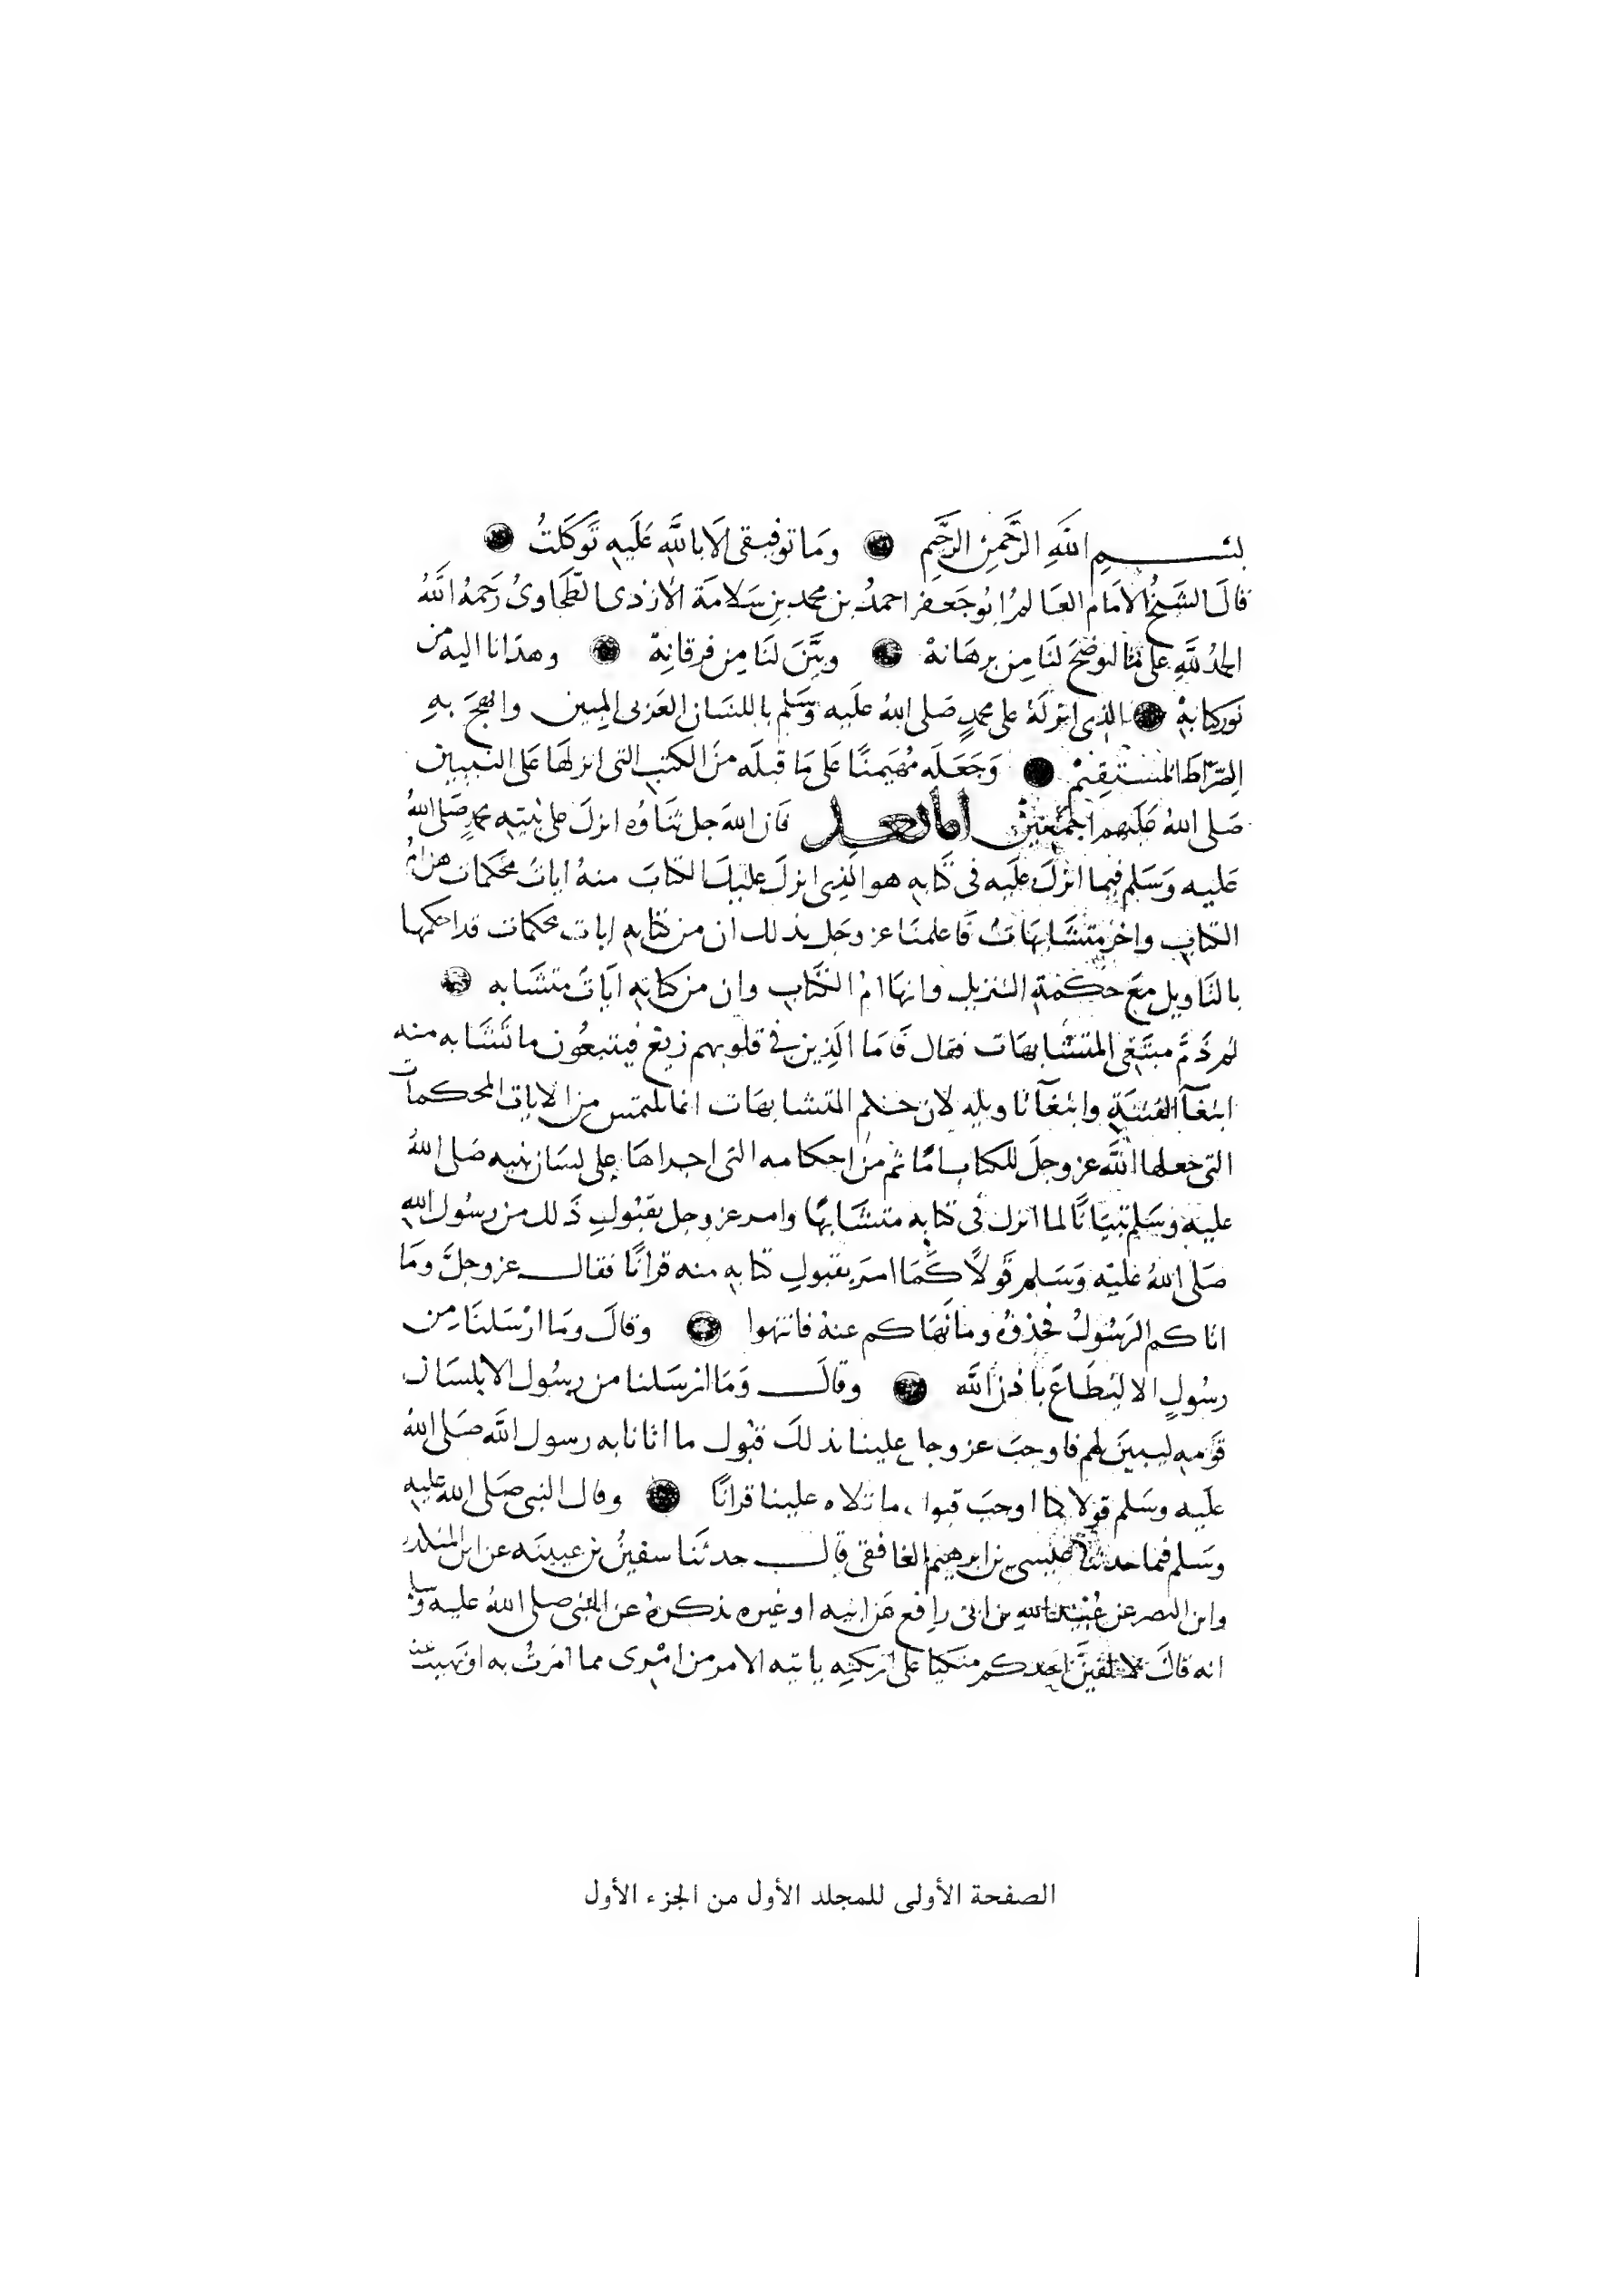 بسم اللهِ الرَّحمنِ الرَّحيمِ وَمَا توفيقي الَا باللَّهِ عَلَيهِ تَوَكَلتُ
قالَ الشَيخُ الامَام العَالمُ ابُو جَعفر احمدُ بن محمد بنِ سَلامَة الازدى الطَّحَاوىُ رَحمهُ اللَّهُ
الحمدُ للَّهِ على مَا اوضحَ لنَا مِن برهَانهْ وبيَّنَ لنَا مِن فرقانِهْ وهدَانا اليه من
نورِ كتابهْ الذى انزلَهُ على محمدٍ صَلى اللهُ عَلَيه وَسَلم باللسَان العَرَبى المبين وانهجَ بهِ
الصِّرَاطَ المستقيمْ وَجَعَلَه مُهَيمنًا عَلى مَا قبلَه منَ الكتبِ التى انزلهَا عَلى النَبيين
صَلى اللهُ عَلَيهم اجمَعينْ اما بعد فَان اللهَ جل ثنَاؤُه انزلَ على نبيّه محمدٍ صَلى اللهُ
عَليه وَسَلم فيما انزلَ عَلَيه فى كتَابهِ هو الَذِى انزلَ عليكَ الكتابَ منهُ اياتٌ محكمات هن امُ
الكتاب واخر متشَابهَاتٌ فَاعلمنَا عز وجَل بذلك ان من كتابه ايات محكمات قد احكمها
بالتَاويل معَ حكمَةِ التنزيل وانهَا امُ الكتَاب وان من كتَابِه ايَاتٌ متشَابه
ثم ذَمَّ مبتَغى المتشَابهَات فقال فَامَا الَذِين فى قلوبهم زيغ فيتبعُون ما تَشَابه منه
ابتغآ الفتنَةِ وابتغآ تاويلهِ لان حكم المتشابهَات انما يلتمس من الايات المحكمات
التى جعلها اللَّه عز وجلَ للكتاب امًا ثم من احكامه التى اجراهَا على لسَان نبيه صَلى اللهُ
عليهِ وَسَلم تبيَانًا لما انزل فى كتابه متشَابهًا وامر عز وجل بقبُولِ ذَلك من رسُول اللهِ
صَلى اللهُ عَليه وَسَلم قَولاً كَمَا امرَ بقبولِ كتابهِ منه قرانًا فقال عز وجلَ ومَا
اتاكم الرَسُولُ فخذوهُ ومَا نَهَاكم عنهُ فانتهوا وقالَ ومَا ارْسَلنَا مِن
رسُولٍ الا ليُطَاعَ باذنِ اللَّه وقالَ وَمَا ارسَلنا من رسُول الا بلسَان
قَومِه ليبينَ لهم فاوجبَ عز وجل علينا بذلكَ قبُول ما اتانا به رسول اللَّه صَلى اللهُ
عَليه وسَلم قولا كما اوحبَ قبول ما تلاه علينا قرانًا وقال النبى صَلى الله عليه
وسَلم فيما حدثنَا عيسى بن ابرهيم الغافقى قال حدثَنا سفينُ بن عيينَه عن ابن المنكدر
وابن النصر عن عُبيد اللهِ بن ابى رافع عَن ابيه او غيره يذكرهُ عن النبى صلى اللهُ عليه وسلم
انه قالَ لا الفينَّ احدكم متكيا على اريكتِه ياتيه الامر من امْرى مما امَرتُ به او نهيتُ عنه
الصفحة الأولى للمجلد الأول من الجزء الأول